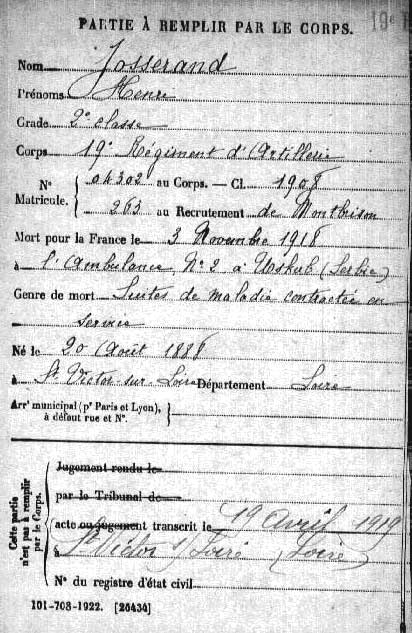 PARTIE À REMPLIR PAR LE CORPS.
19e
Nom Josserand
Prénoms Henri
Grade 2e classe
Corps 19e Régiment d'Artillerie
N° Matricule. 04302 au Corps. — Cl. 1908
263 au Recrutement de Montbrison
Mort pour la France le 3 Novembre 1918
à l'Ambulance N°2 à Uskub (Serbie)
Genre de mort Suites de maladie contractée en
service
Né le 20 Août 1888
à St Victor-sur-Loire Département Loire
Arrt municipal (pr Paris et Lyon), à défaut rue et N°.
Cette partie n'est pas à remplir par le Corps.
Jugement rendu le
par le Tribunal de
acte ou jugement transcrit le 19 Avril 1919
à St Victor s/ Loire (Loire)
N° du registre d'état civil
101-708-1922. [26434]